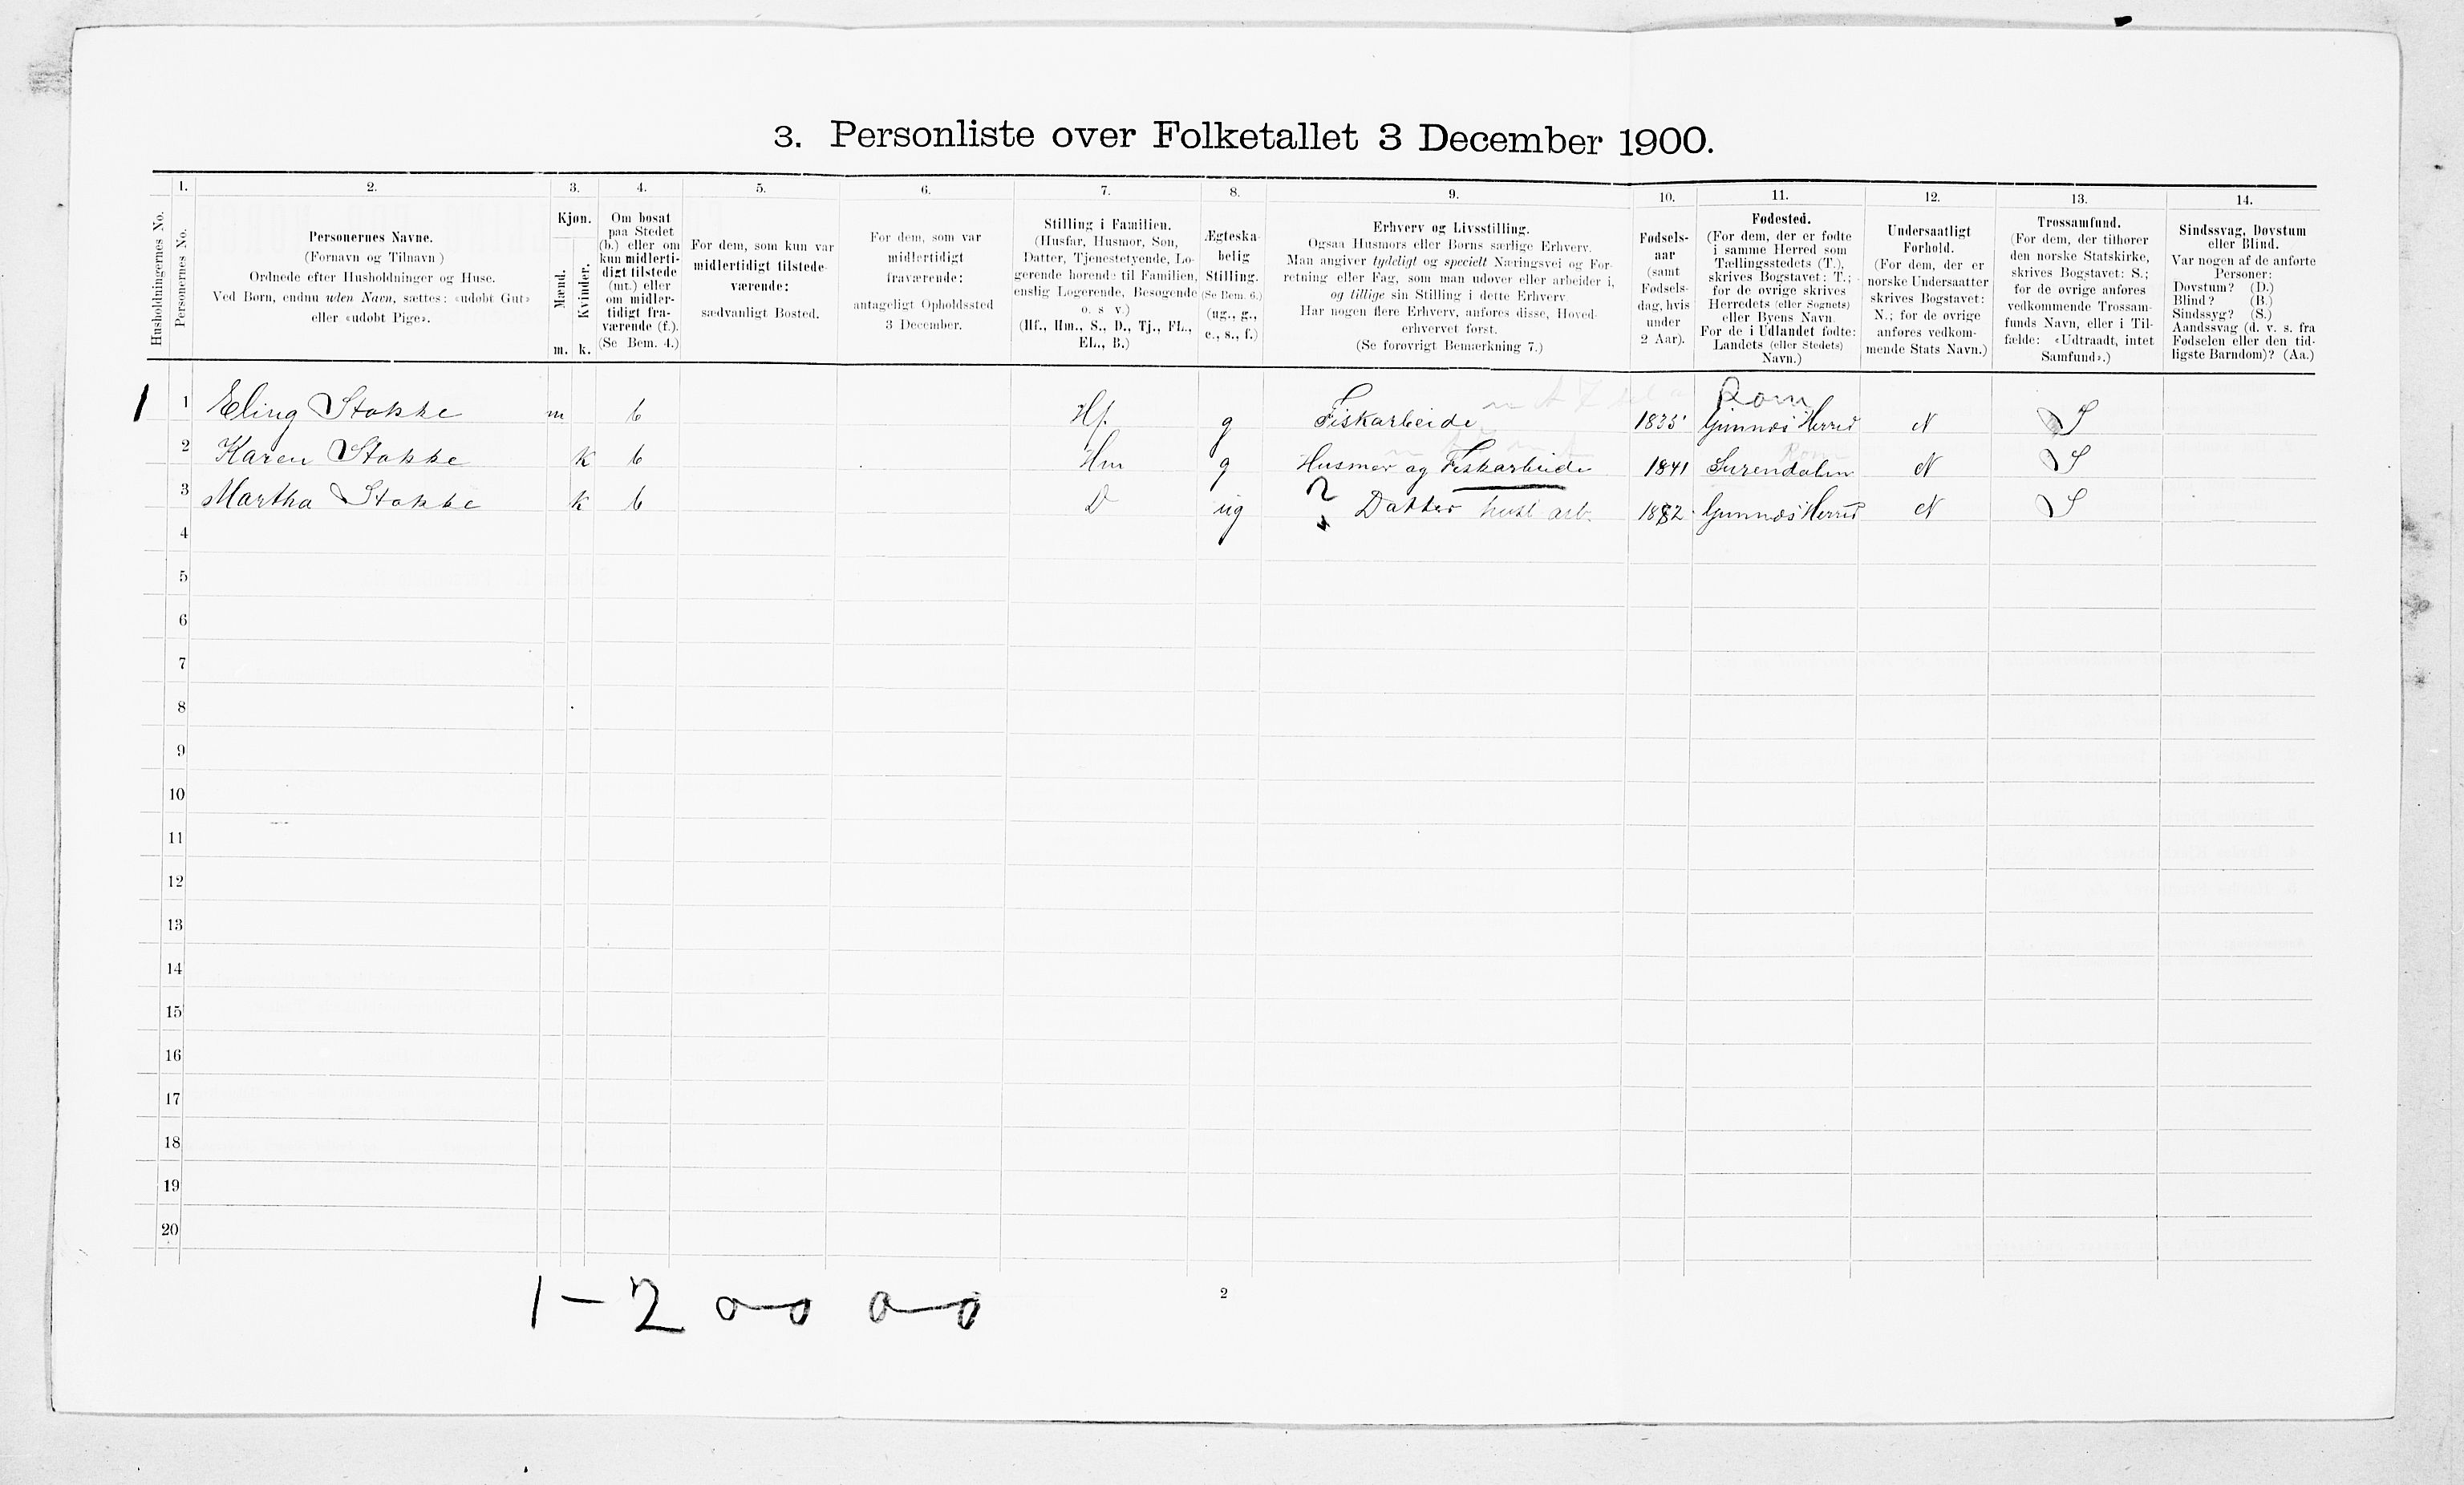 3. Personliste over Folketallet 3 December 1900.
1. 2. 3. 4. 5. 6. 7. 8. 9. 10. 11. 12. 13. 14.
Husholdningernes No.
Personernes No.
Personernes Navne.
(Fornavn og Tilnavn)
Ordnede efter Husholdninger og Huse.
Ved Børn, endnu uden Navn, sættes: «udøbt Gut»
eller «udøbt Pige».
Kjøn.
Mænd.
Kvinder.
m. k.
Om bosat
paa Stedet
(b.) eller om
kun midlerti-
digt tilstede
(mt.) eller
om midler-
tidigt fra-
værende (f.).
(Se Bem. 4.)
For dem, som kun var
midlertidigt tilstede-
værende:
sædvanligt Bosted.
For dem, som var
midlertidigt
fraværende:
antageligt Opholdssted
3 December.
Stilling i Familien.
(Husfar, Husmor, Søn,
Datter, Tjenestetyende, Lo-
gerende hørende til Familien,
enslig Logerende, Besøgende
o. s. v.)
(Hf., Hm., S., D., Tj., FL.,
EL., B.)
Ægteska-
belig
Stilling.
(Se Bem. 6.)
(ug., g.,
e., s., f.)
Erhverv og Livsstilling.
Ogsaa Husmors eller Børns særlige Erhverv.
Man angiver tydeligt og specielt Næringsvei og For-
retning eller Fag, som man udøver eller arbeider i,
og tillige sin Stilling i dette Erhverv.
Har nogen flere Erhverv, anføres disse, Hoved-
erhvervet først.
(Se forøvrigt Bemærkning 7.)
Fødsels-
aar
(samt
Fødsels-
dag, hvis
under
2 Aar).
Fødested.
(For dem, der er fødte
i samme Herred som
Tællingsstedets (T.),
skrives Bogstavet: T.;
for de øvrige skrives
Herredets (eller Sognets)
eller Byens Navn.
For de i Udlandet fødte:
Landets (eller Stedets)
Navn.)
Undersaatligt
Forhold.
(For dem, der er
norske Undersaatter
skrives Bogstavet:
N.; for de øvrige
anføres vedkom-
mende Stats Navn.)
Trossamfund.
(For dem, der tilhører
den norske Statskirke,
skrives Bogstavet: S.;
for de øvrige anføres
vedkommende Trossam-
funds Navn, eller i Til-
fælde: «Udtraadt, intet
Samfund».)
Sindssvag, Døvstum
eller Blind.
Var nogen af de anførte
Personer:
Døvstum? (D.)
Blind? (B.)
Sindssyg? (S.)
Aandssvag (d. v. s. fra
Fødselen eller den tid-
ligste Barndom)? (Aa.)
Rom
1 1 Eling Stokke m b Hf. g Fiskarbeide 1835 Gimnæs Herred N S
2 Karen Stokke k b Hm g Husmor og Fiskarbeide 1841 Surendalen N S
3 Martha Stokke k b D ug ? Datter husl arb. 1882 Gimnæs Herred N S
4
5
6
7
8
9
10
11
12
13
14
15
16
17
18
19
20
1 – 2 0–0 0–0
2